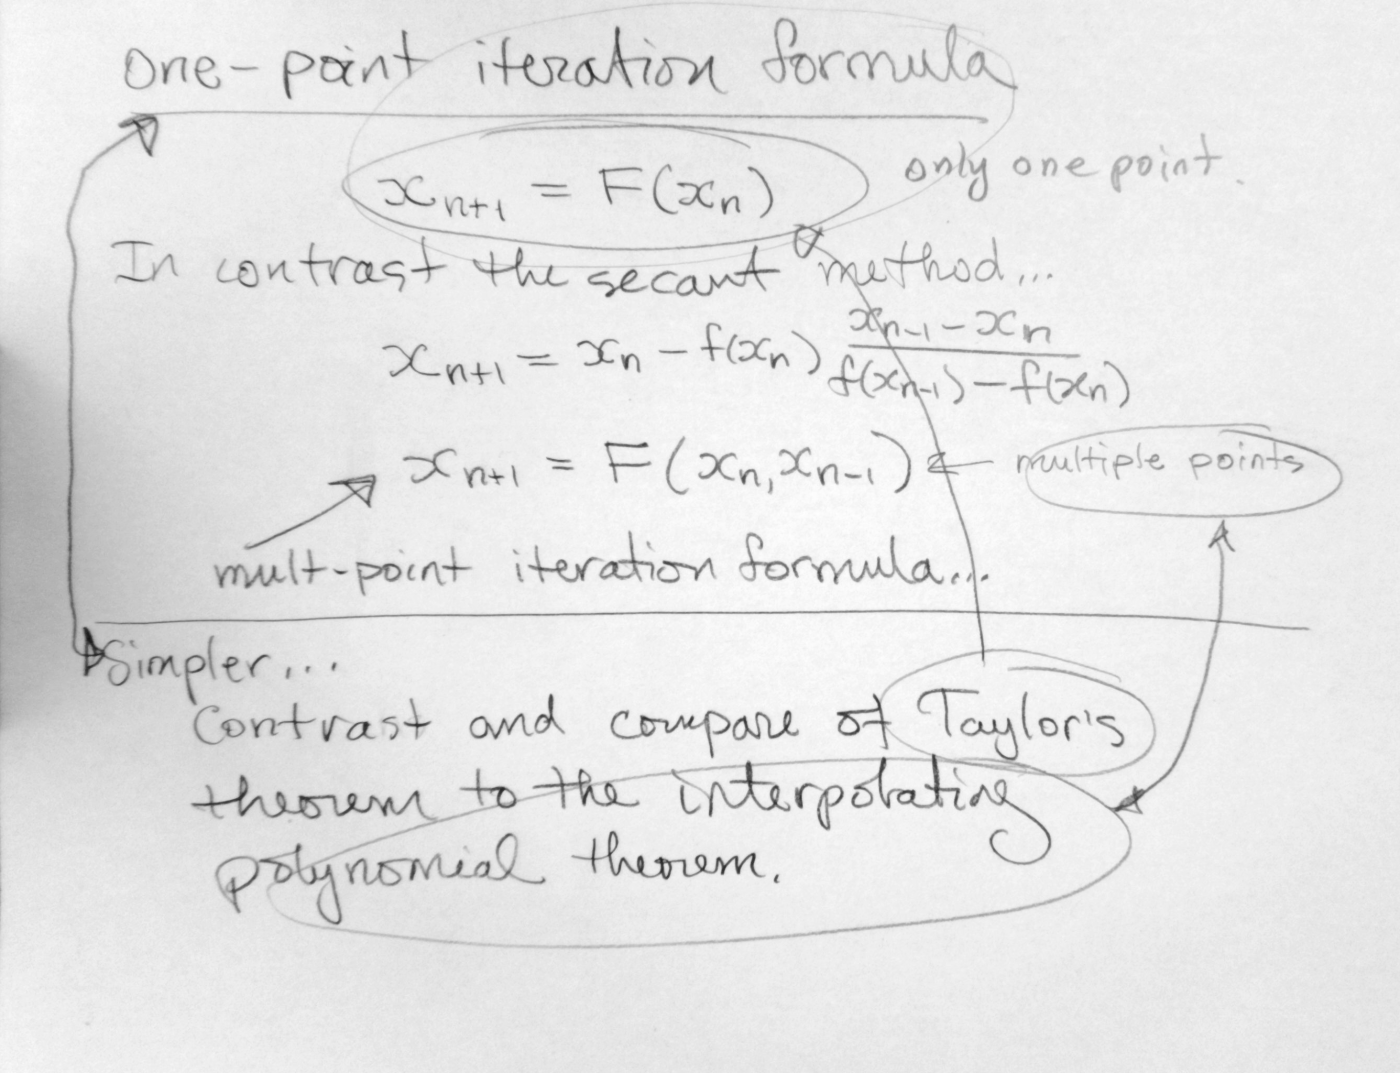 one-point iteration formula
x_{n+1} = F(x_n)
only one point.
In contrast the secant method...
x_{n+1} = x_n - f(x_n) \frac{x_{n-1} - x_n}{f(x_{n-1}) - f(x_n)}
x_{n+1} = F(x_n, x_{n-1}) ← multiple points
mult-point iteration formula...
Simpler...
Contrast and compare of Taylor's
theorem to the interpolating
polynomial theorem.